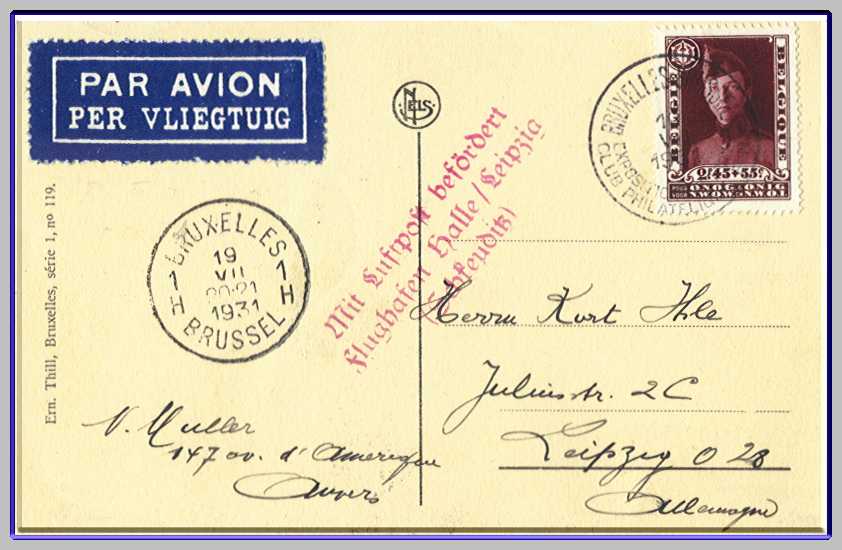 PAR AVION
PER VLIEGTUIG
NELS
BRUXELLES
EXPOSITION
CLUB PHILATELIQUE
BELGIE
BELGIQUE
2F45+55c
POUR
VOOR
ONOG & ONIG
NWOW-NWOT
Mit Luftpost befördert
Flughafen Halle/Leipzig
(Schkeuditz)
BRUXELLES
19
VII
20-21
1931
1 H
1 H
BRUSSEL
Ern. Thill, Bruxelles, série 1, nº 119.
Herrn Kurt Ihle
Juliusstr. 2C
Leipzig O 28
Allemagne
V. Muller
147 av. d'Amerique
Anvers